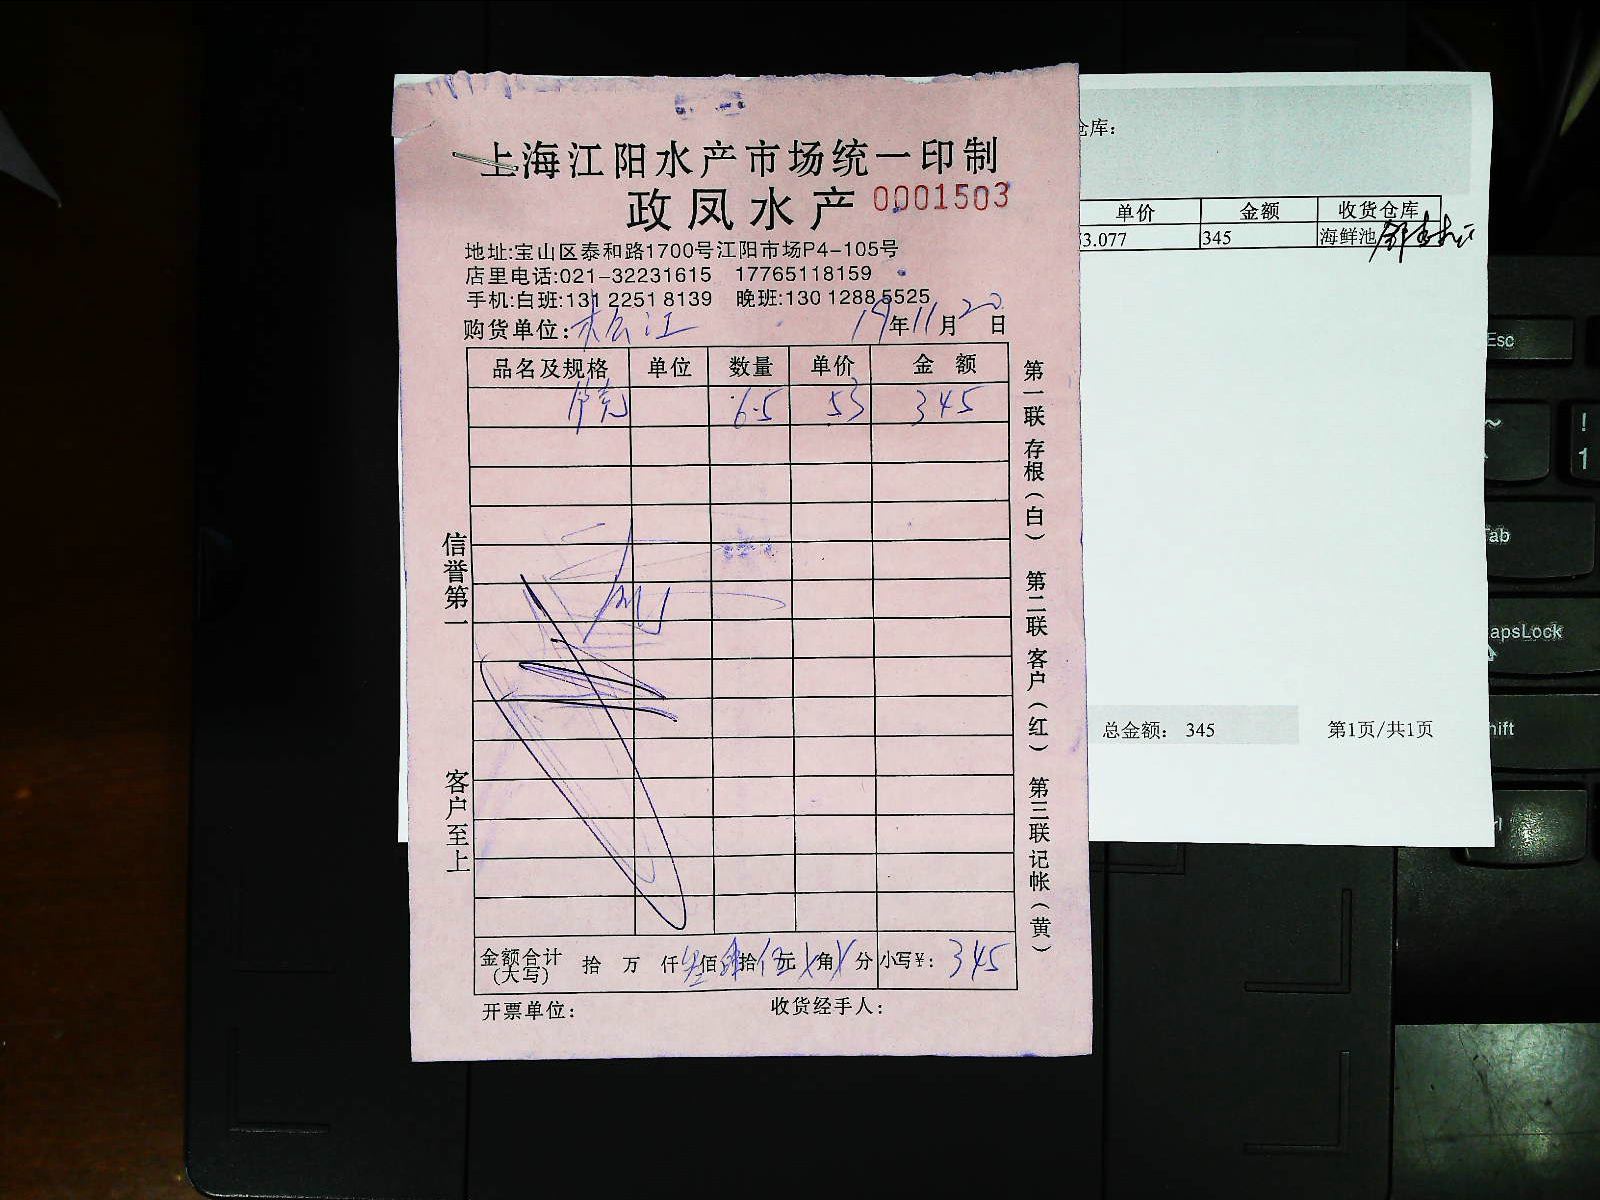 上海江阳水产市场统一印制
政凤水产 0001503
地址:宝山区泰和路1700号江阳市场P4-105号
店里电话:021-32231615 17765118159
手机:白班:131 2251 8139 晚班:130 1288 5525
购货单位: 松江 19年11月20日
品名及规格 单位 数量 单价 金额
6.5 53 345
金额合计(大写) 拾 万 仟叁佰肆拾伍元 角 分 小写¥: 345
开票单位: 收货经手人:
信誉第一
客户至上
第一联 存根(白) 第二联 客户(红) 第三联 记帐(黄)
仓库:
单价 金额 收货仓库
3.077 345 海鲜池
总金额: 345 第1页/共1页
Esc
~
!
1
ab
apsLock
hift
rl